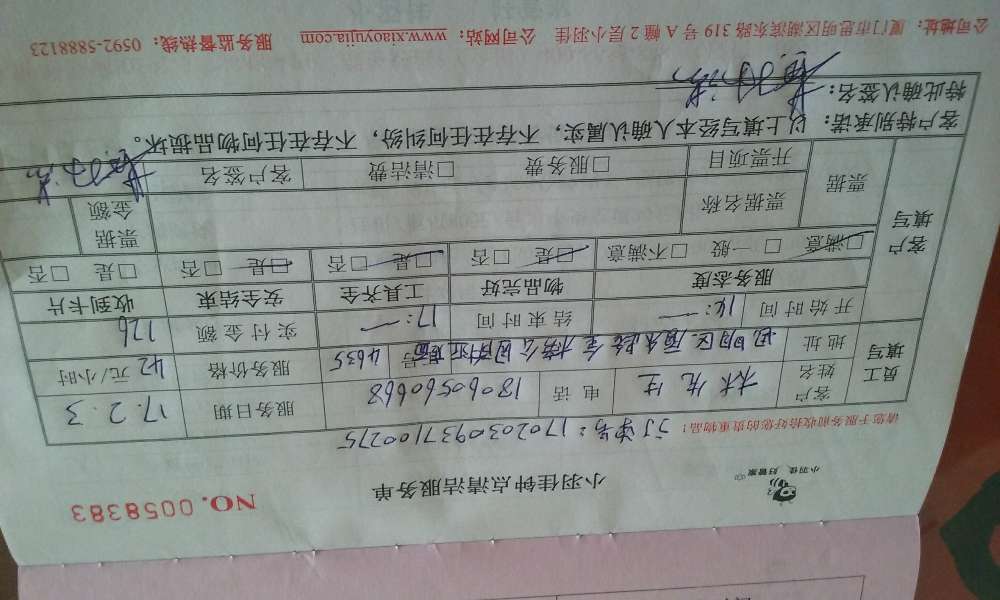 小羽佳 好管家
小羽佳钟点清洁服务单
NO. 0058383
请您于服务前收拾好您的贵重物品！ 订单号：17020309937100275
员工填写
客户姓名 林先生 电话 18060560668 服务日期 17.2.3
地址 思明区 号 4635 服务价格 42 元/小时
开始时间 14：一 结束时间 17：一 实付金额 126
客户填写
服务态度 物品完好 工具齐全 安全结束 收到卡片
□满意 □一般 □不满意 □是 □否 □是 □否 □是 □否 □是 □否
票据 票据名称 票据金额
开票项目 □服务费 □清洁费 客户签名
客户特别承诺：以上填写经本人确认属实，不存在任何纠纷，不存在任何物品损坏。
特此确认签名：
公司地址：厦门市思明区湖滨东路 319 号 A 幢 2 层小羽佳 公司网站：www.xiaoyujia.com 服务监督热线：0592-5888123